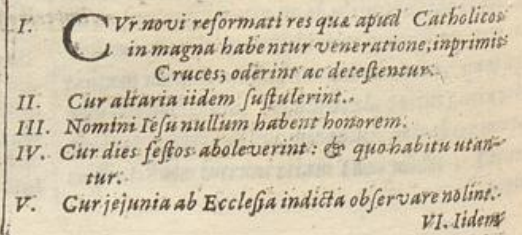 I. CVr novi reformati res quæ apud Catholicos
in magna habentur veneratione, inprimis
Cruces; oderint ac detestentur.
II. Cur altaria iidem sustulerint.
III. Nomini Iesu nullum habent honorem.
IV. Cur dies festos aboleverint: & quo habitu utan-
tur.
V. Cur jejunia ab Ecclesia indicta observare nolint.
VI. Iidem